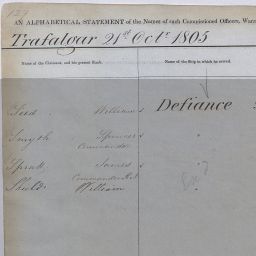 121
AN ALPHABETICAL STATEMENT of the Names of such Commissioned Officers, Warr
Trafalgar 21st Octr 1805
Name of the Claimant, and his present Rank. Name of the Ship in which he served.
Defiance
William
Smyth Spencer
Commander
Spratt James
Commander
William